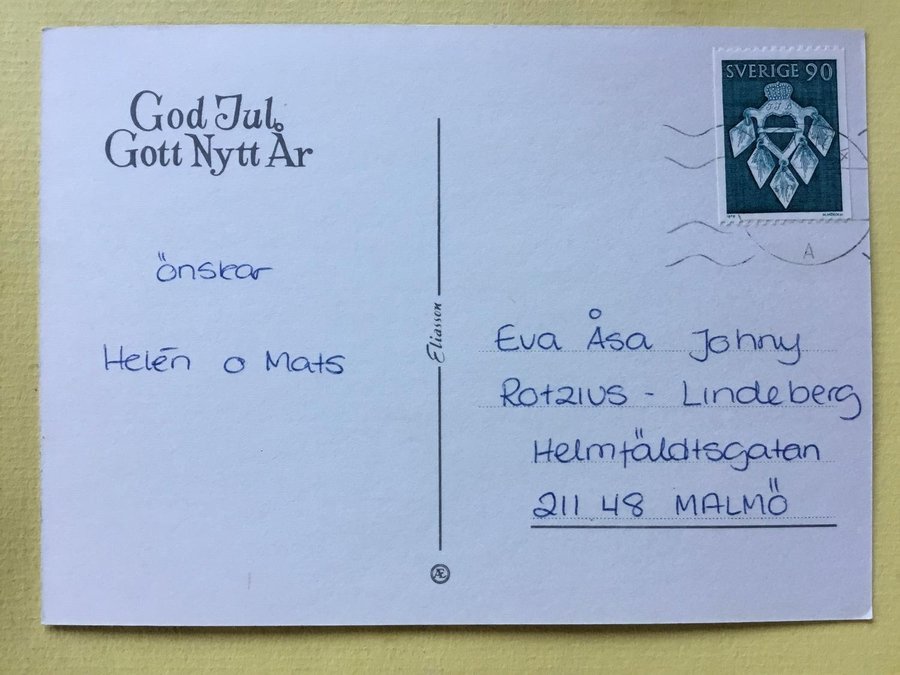 God Jul,
Gott Nytt År
önskar
Helén o Mats
Eliasson
Æ
SVERIGE 90
A
Eva Åsa Johny
Rotzius - Lindeberg
Helmfäldtsgatan
211 48 MALMÖ